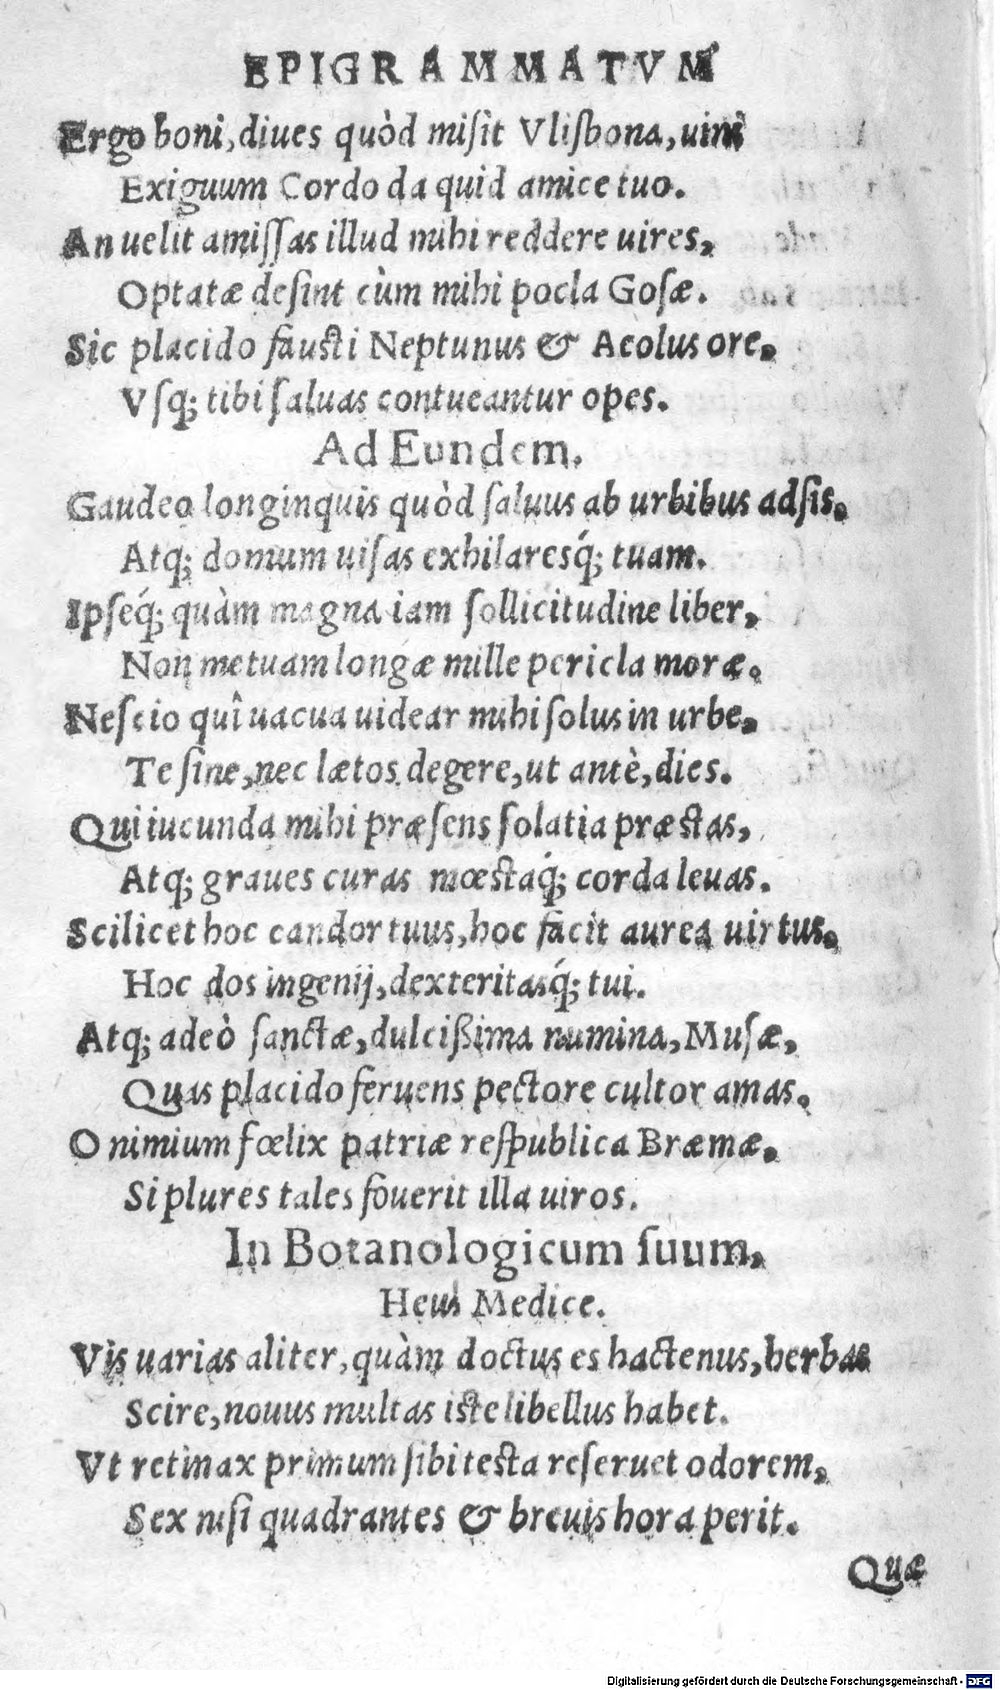 EPIGRAMMATVM
Ergo boni, diues quòd misit Vlisbona, uini
Exiguum Cordo da quid amice tuo.
An uelit amissas illud mihi reddere uires,
Optatæ desint cùm mihi pocla Gosæ.
Sic placido fausti Neptunus & Aeolus ore,
Vsq; tibi saluas contueantur opes.
Ad Eundem.
Gaudeo longinquis quòd saluus ab urbibus adsis,
Atq; domum uisas exhilaresq́; tuam.
Ipseq́; quàm magna iam sollicitudine liber,
Non metuam longæ mille pericla moræ.
Nescio quî uacua uidear mihi solus in urbe,
Te sine, nec lætos degere, ut antè, dies.
Qui iucunda mihi præsens solatia præstas,
Atq; graues curas mœstaq́; corda leuas.
Scilicet hoc candor tuus, hoc facit aurea uirtus,
Hoc dos ingenij, dexteritasq́; tui.
Atq; adeò sanctæ, dulcißima numina, Musæ,
Quas placido feruens pectore cultor amas.
O nimium fœlix patriæ respublica Bræmæ,
Si plures tales fouerit illa uiros.
In Botanologicum suum,
Heus Medice.
Vis uarias aliter, quàm doctus es hactenus, herbas
Scire, nouus multas iste libellus habet.
Vt retinax primum sibi testa reseruet odorem,
Sex nisi quadrantes & breuis hora perit.
Quæ
Digitalisierung gefördert durch die Deutsche Forschungsgemeinschaft - DFG